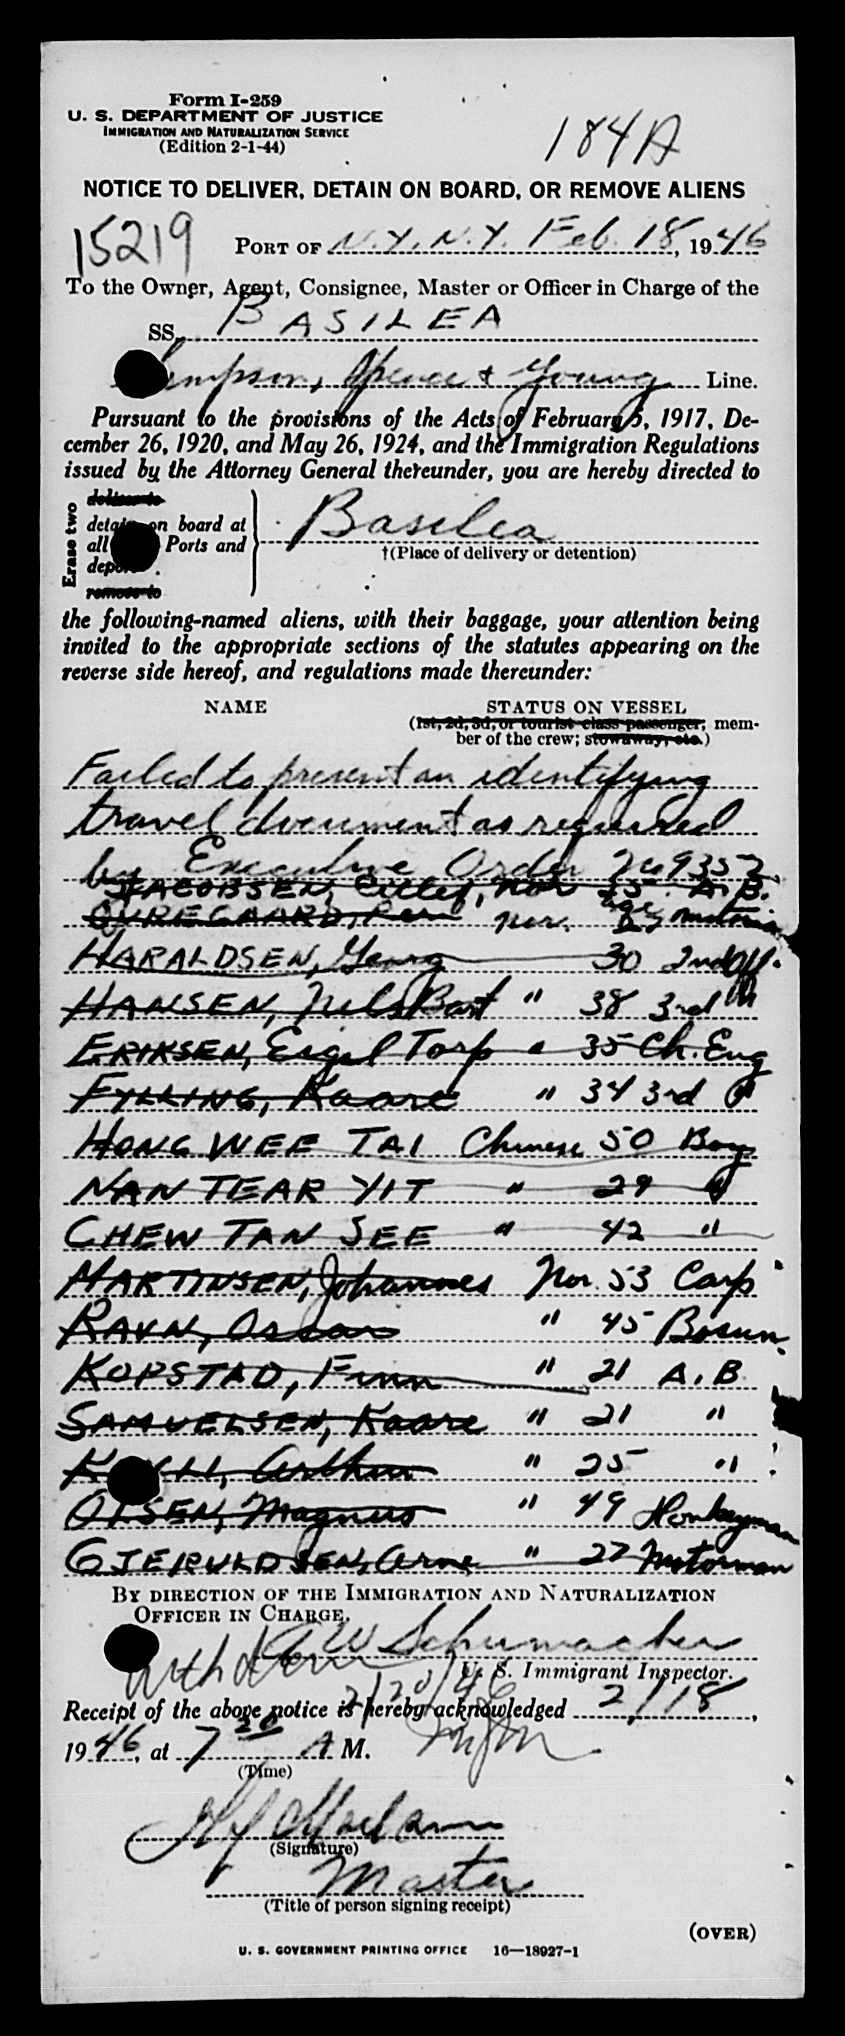 Form I-259
U. S. DEPARTMENT OF JUSTICE
IMMIGRATION AND NATURALIZATION SERVICE
(Edition 2-1-44)
184A
NOTICE TO DELIVER, DETAIN ON BOARD, OR REMOVE ALIENS
15219
PORT OF N.Y. N.Y. Feb. 18, 1946
To the Owner, Agent, Consignee, Master or Officer in Charge of the
SS. BASILEA
Simpson, Spence & Young Line.
Pursuant to the provisions of the Acts of February 5, 1917, De-
cember 26, 1920, and May 26, 1924, and the Immigration Regulations
issued by the Attorney General thereunder, you are hereby directed to
Erase two
deliver to
detain on board at
all Ports and
deport
remove to
Basilea
†(Place of delivery or detention)
the following-named aliens, with their baggage, your attention being
invited to the appropriate sections of the statutes appearing on the
reverse side hereof, and regulations made thereunder:
NAME STATUS ON VESSEL
(1st, 2d, 3d, or tourist class passenger; mem-
ber of the crew; stowaway, etc.)
Failed to present an identifying
travel document as required
by Executive Order No 9352
JACOBSEN, Nor 25 A.B.
Nor.
HARALDSEN, Georg 30 2nd Off.
HANSEN, Nils Bart " 38 3rd "
ERIKSEN, Eigil Torp " 35 Ch. Eng
FYLLING, Kaare " 34 3rd "
HONG WEE TAI Chinese 50 Boy
NAN TEAR YIT " 29 "
CHEW TAN SEE " 42 "
MARTINSEN, Johannes Nor. 53 Carp
RAVN, Oscar " 45 Bosun
KOPSTAD, Finn " 21 A.B
SAMUELSEN, Kaare " 21 "
Arthur " 25 "
OLSEN, Magnus " 49 Donkeyman
GJERULDSEN, Arne " 27 Motorman
BY DIRECTION OF THE IMMIGRATION AND NATURALIZATION
OFFICER IN CHARGE.
A W Schumacher
U. S. Immigrant Inspector.
2/20/46
Receipt of the above notice is hereby acknowledged 2/18,
1946, at 7 20 A M.
(Time)
(Signature)
Master
(Title of person signing receipt)
(OVER)
U. S. GOVERNMENT PRINTING OFFICE 16—18927-1